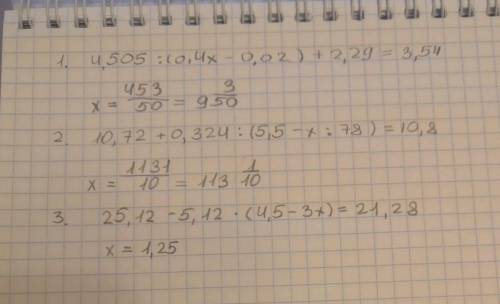 1. 4,505 : (0,4x - 0,02) + 2,29 = 3,54
x = 453/50 = 9 3/50
2. 10,72 + 0,324 : (5,5 - x : 78) = 10,8
x = 1131/10 = 113 1/10
3. 25,12 - 5,12 · (4,5 - 3x) = 21,28
x = 1,25